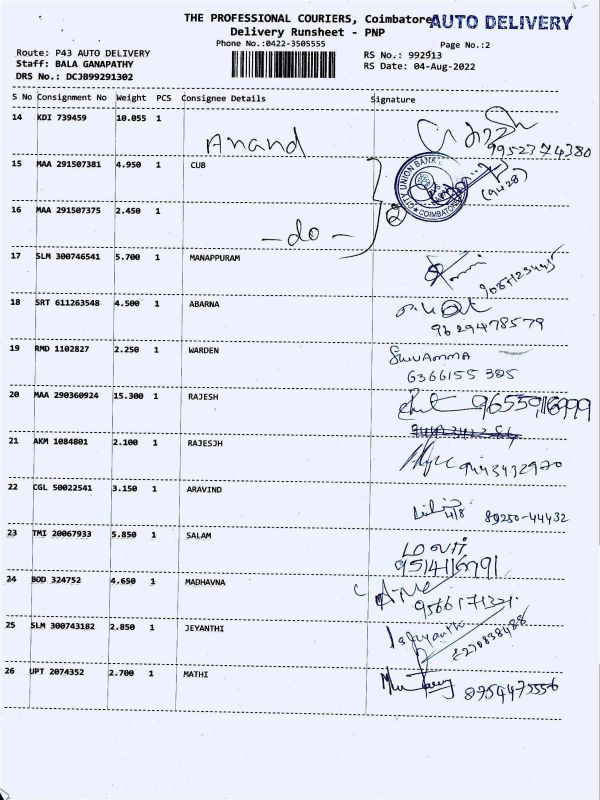 THE PROFESSIONAL COURIERS, Coimbatore AUTO DELIVERY
Delivery Runsheet - PNP
Phone No.:0422-3505555
Page No.:2
Route: P43 AUTO DELIVERY
RS No.: 992913
Staff: BALA GANAPATHY
RS Date: 04-Aug-2022
DRS No.: DCJB99291302
S No Consignment No Weight PCS Consignee Details Signature
14 KDI 739459 10.055 1
Anand
9952374380
15 MAA 291507381 4.950 1 CUB
CITY UNION BANK
COIMBATORE
(9428)
16 MAA 291507375 2.450 1
2
- do -
17 SLM 300746541 5.700 1 MANAPPURAM
18 SRT 611263548 4.500 1 ABARNA
9629478579
19 RMD 1102827 2.250 1 WARDEN
SUVAMMA
6366155 385
20 MAA 290360924 15.300 1 RAJESH
21 AKM 1084801 2.100 1 RAJESJH
9443432970
22 CGL 50022541 3.150 1 ARAVIND
4/8 89250-44432
23 TMI 20067933 5.850 1 SALAM
9514116791
24 BOD 324752 4.650 1 MADHAVNA
9566171321
25 SLM 300743182 2.850 1 JEYANTHI
8270838488
26 UPT 2074352 2.700 1 MATHI
8754475556